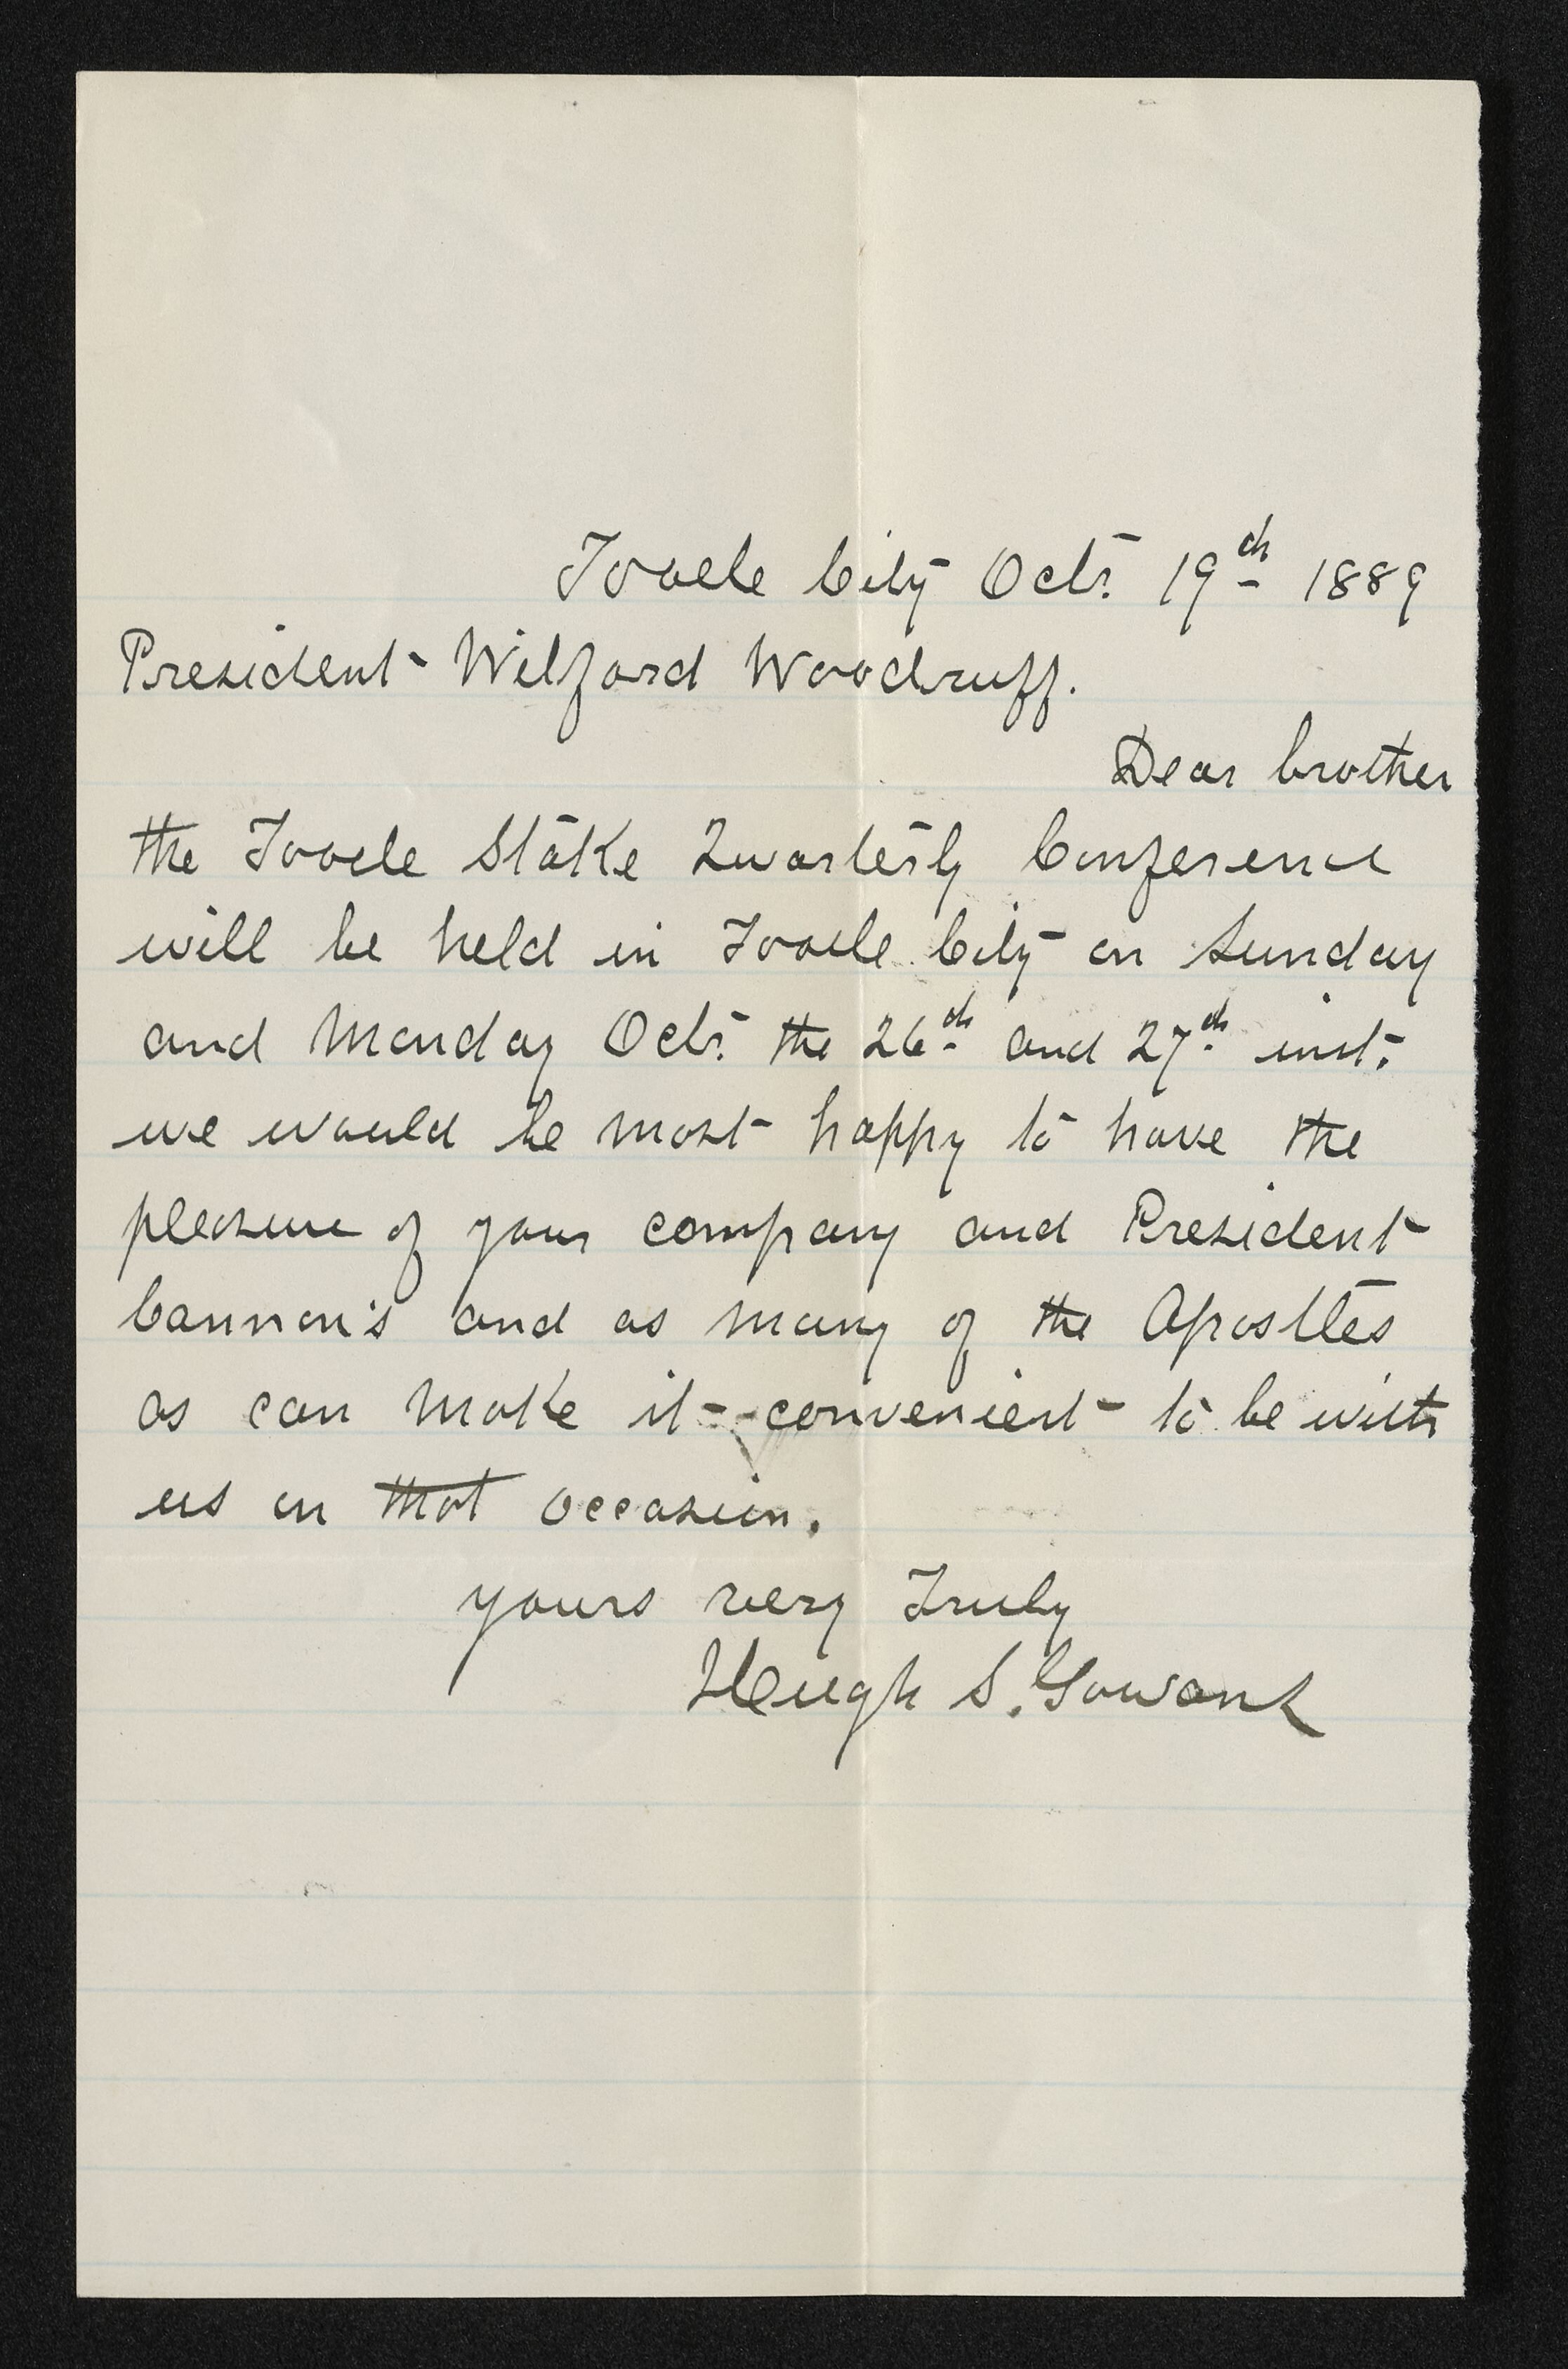 Tooele City Oct. 19th 1889
President Wilford Woodruff.
Dear brother
the Tooele Stake Quarterly Conference
will be held in Tooele City on Sunday
and Monday Oct. the 26th and 27th inst.
we would be most happy to have the
pleasure of your company and President
Cannon's and as many of the Apostles
as can make it convenient to be with
us on that occasion.
yours very Truly
Hugh S. Gowans